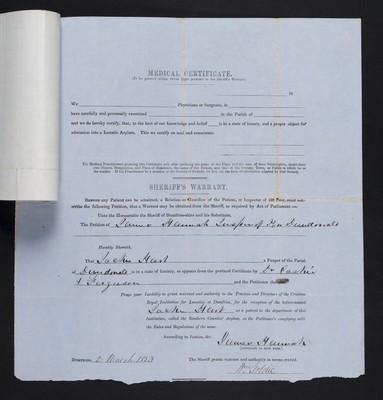 MEDICAL CERTIFICATE.
(To be granted within Seven Days previous to the Sheriff's Warrant).
18
We Physicians or Surgeons, in
have carefully and personally examined in the Parish of
and we do hereby certify, that, to the best of our knowledge and belief is in a state of lunacy, and a proper object for
admission into a Lunatic Asylum. This we certify on soul and conscience.
SHERIFF'S WARRANT.
Before any Patient can be admitted, a Relation or Guardian of the Patient, or Inspector of the Poor, must subscribe
the following Petition, that a Warrant may be obtained from the Sheriff, as required by Act of Parliament:—
Unto the Honourable the Sheriff of Dumfries-shire and his Substitutes.
The Petition of James Hannah Inspr of Poor Dundonald
Humbly Sheweth,
That Hart, a Pauper of the Parish
of Dundonald is in a state of lunacy, as appears from the prefixed Certificate by Dr
& Ferguson and the Petitioner
Prays your Lordship to grant warrant and authority to the Trustees and Directors of the Crichton
Royal Institution for Lunatics at Dumfries, for the reception of the before-named
Hart as a patient to the department of this
Institution, called the Southern Counties' Asylum, on the Petitioner's complying with
the Rules and Regulations of the same.
According to Justice, &c.
James Hannah
DUMFRIES, 2 March 1853 The Sheriff grants warrant and authority in terms craved.